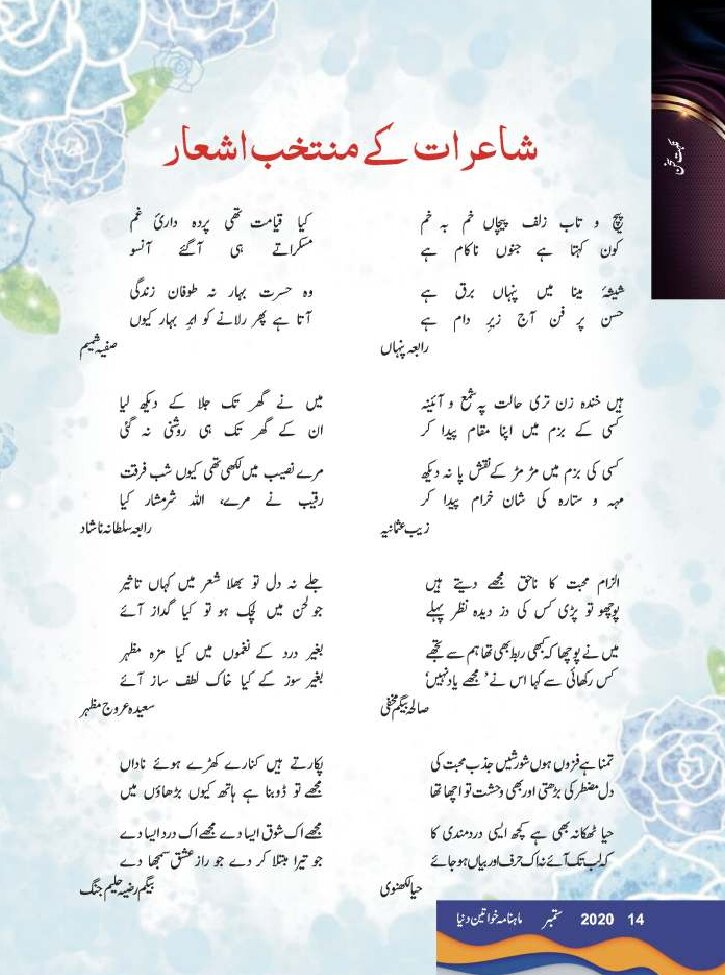 شاعرات کے منتخب اشعار
پیچ و تاب زلف پیچاں خم بہ خم
کون کہتا ہے جنوں ناکام ہے
شیشۂ مینا میں پنہاں برق ہے
حسن پر فن آج زیرِ دام ہے
رابعہ پنہاں
کیا قیامت تھی پردہ داریٔ غم
مسکراتے ہی آگئے آنسو
وہ حسرت بہار نہ طوفان زندگی
آتا ہے پھر رلانے کو ابرِ بہار کیوں
صفیہ شمیم
ہیں خندہ زن تری حالت پہ شمع و آئینہ
کسی کے بزم میں اپنا مقام پیدا کر
کسی کی بزم میں مڑ مڑ کے نقش پا نہ دیکھ
مہہ و ستارہ کی شان خرام پیدا کر
زیب عثمانیہ
میں نے گھر تک جلا کے دیکھ لیا
ان کے گھر تک ہی روشنی نہ گئی
مرے نصیب میں لکھی تھی کیوں شب فرقت
رقیب نے مرے، اللہ شرمشار کیا
رابعہ سلطانہ ناشاد
الزام محبت کا ناحق مجھے دیتے ہیں
پوچھو تو پڑی کس کی دز دیدہ نظر پہلے
میں نے پوچھا کہ کبھی ربط بھی تھا ہم سے تجھے
کس رکھائی سے کہا اس نے ’مجھے یاد نہیں‘
صالحہ بیگم مخفی
جلے نہ دل تو بھلا شعر میں کہاں تاثیر
جو لحن میں لچک ہو تو کیا گداز آئے
بغیر درد کے نغموں میں کیا مزہ مظہر
بغیر سوز کے کیا خاک لطف ساز آئے
سعیدہ عروج مظہر
تمنا ہے فزوں ہوں شورشیں جذب محبت کی
دل مضطر کی بڑھتی اور بھی وحشت تو اچھا تھا
حیا ٹھکانہ بھی ہے کچھ ایسی دردمندی کا
کہ لب تک آئے نہ اک حرف اور بیاں ہوجائے
حیا لکھنوی
پکارتے ہیں کنارے کھڑے ہوئے ناداں
مجھے تو ڈوبنا ہے ہاتھ کیوں بڑھاؤں میں
مجھے اک شوق ایسا دے مجھے اک درد ایسا دے
جو تیرا مبتلا کر دے جو راز عشق سمجھا دے
بیگم رضیہ حلیم جنگ
ماہنامہ خواتین دنیا ستمبر 2020 14